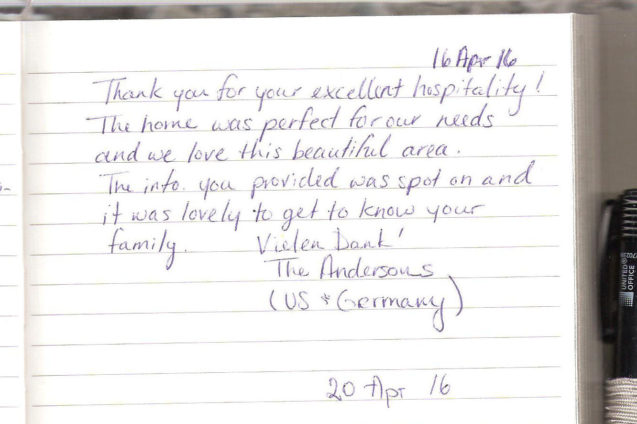 16 Apr 16
Thank you for your excellent hospitality!
The home was perfect for our needs
and we love this beautiful area.
The info. you provided was spot on and
it was lovely to get to know your
family. Vielen Dank!
The Andersons
(US & Germany)
20 Apr 16
UNITED
OFFICE